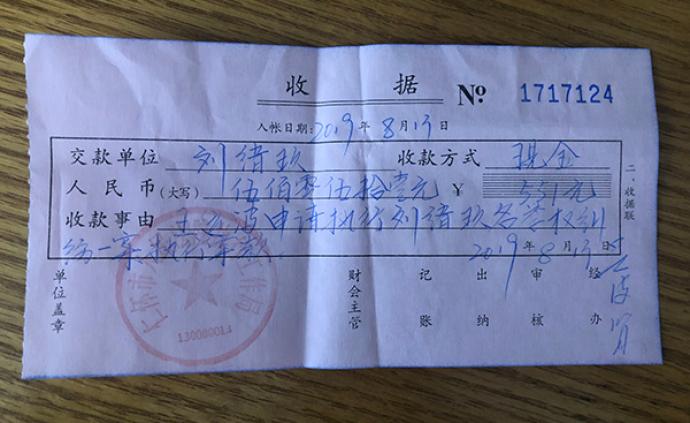 收据 № 1717124
入帐日期:2019年8月13日
交款单位 刘绪玖 收款方式 现金
人民币(大写) 伍佰零伍拾壹元 ¥ 551元
收款事由 王 申请执行刘绪玖名誉权纠
纷一案执行案款。
2019年8月13日
二、收据联
单位盖章 财会主管 记账 出纳 审核 经办
130000014